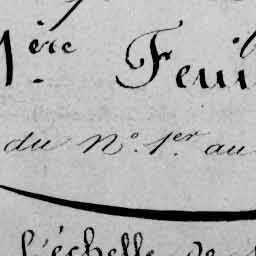 1ère Feuil
du N° 1er au
l'échelle de